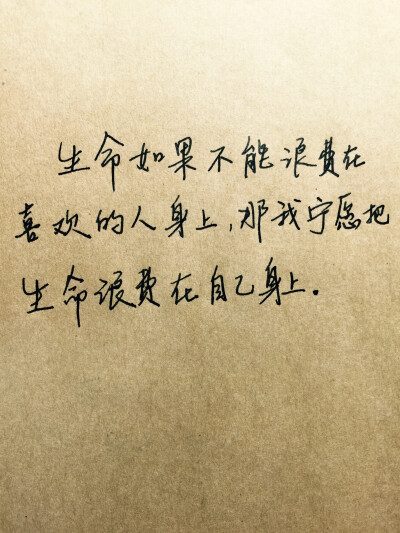 生命如果不能浪费在
喜欢的人身上,那我宁愿把
生命浪费在自己身上。